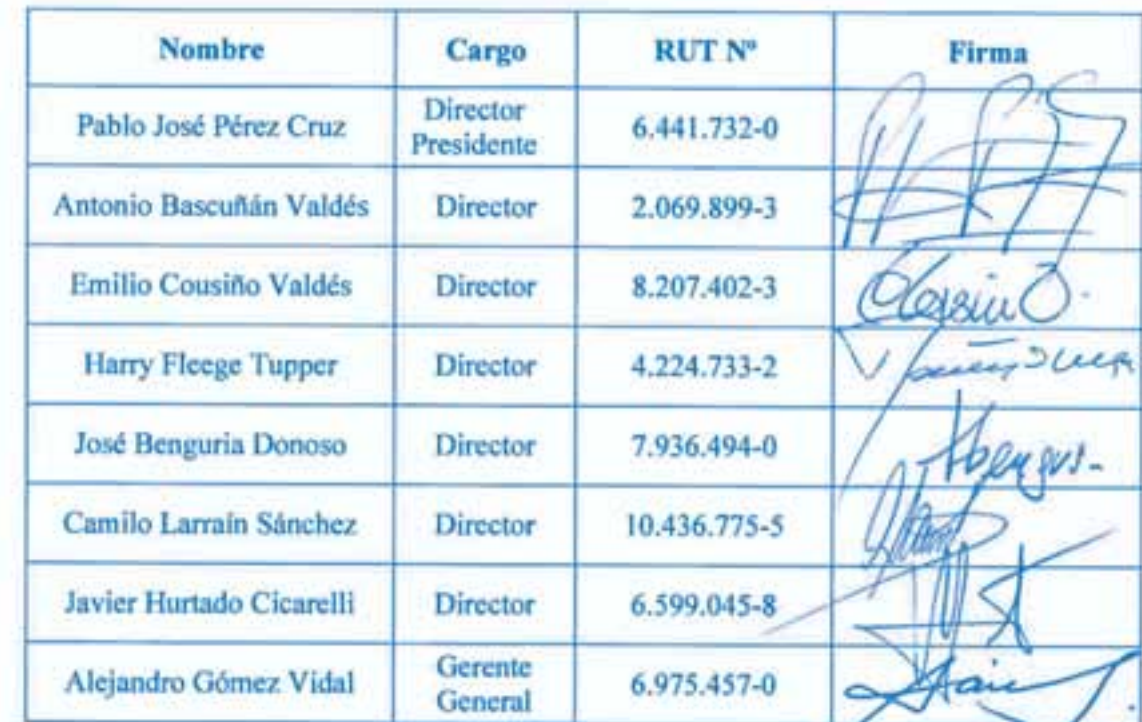 Nombre Cargo RUT Nº Firma
Pablo José Pérez Cruz Director Presidente 6.441.732-0
Antonio Bascuñán Valdés Director 2.069.899-3
Emilio Cousiño Valdés Director 8.207.402-3
Harry Fleege Tupper Director 4.224.733-2
José Benguria Donoso Director 7.936.494-0
Camilo Larraín Sánchez Director 10.436.775-5
Javier Hurtado Cicarelli Director 6.599.045-8
Alejandro Gómez Vidal Gerente General 6.975.457-0